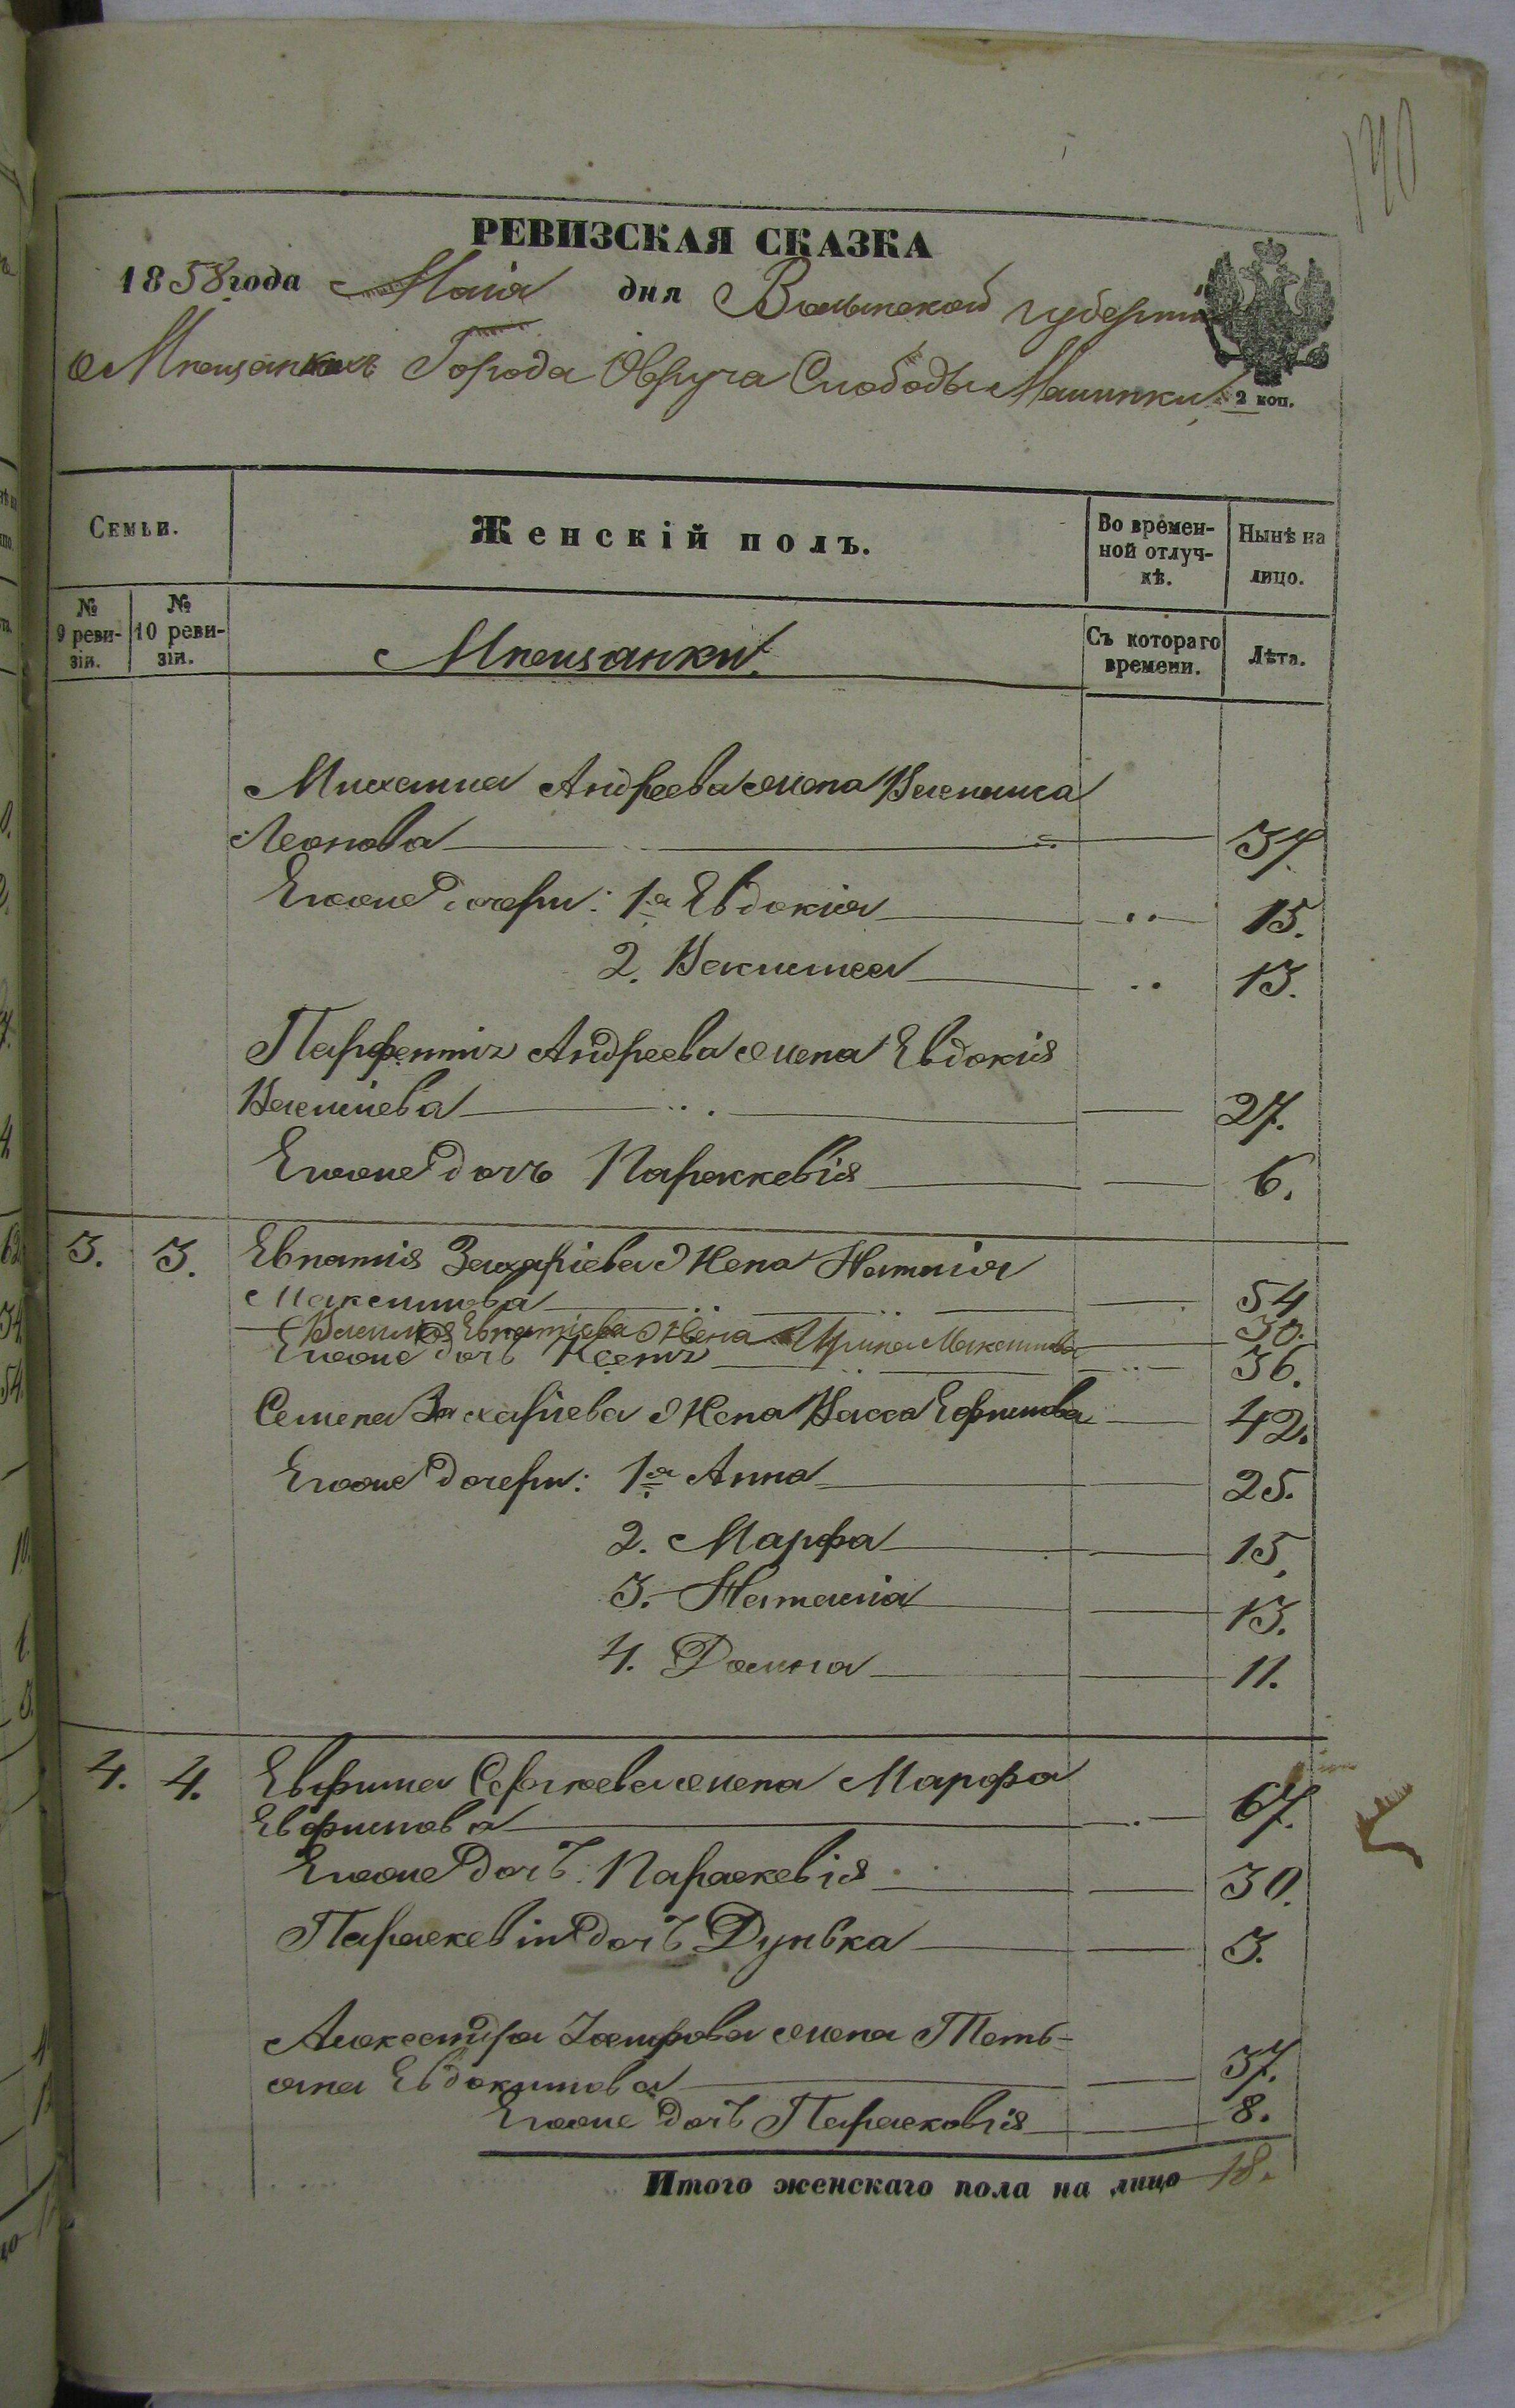 140
РЕВИЗСКАЯ СКАЗКА
1858 года Маія дня Волынской губерніи
О Мѣщанкахъ Города Овруча Слободы Малинки
2 коп.
Семьи.
Женскій полъ.
Во времен-
ной отлуч-
кѣ.
Нынѣ на
лицо.
№
9 реви-
зіи.
№
10 реви-
зіи.
Мѣщанки.
Съ котораго
времени.
Лѣта.
Михаила Андреева жена
Леонова 37.
Его же дочери: 1я Евдокія 15.
2. 13.
Парфентія Андреева жена Евдокія
Васильева 27.
Его же дочь Параскевія 6.
3. 3. Евпатія Захаріева жена Наталія
Максимова 54
Василія Евпатіева жена Ирина Максимова 30.
Его же дочь Ксенія 36.
Семена Захаріева жена Васса Ефимова 42.
Его же дочери: 1я Анна 25.
2. Марфа 15.
3. Наталія 13.
4. Домна 11.
4. 4. Евфима Сергѣева жена Марфа
Евфимова 67.
Его же дочь Параскевія 30.
Параскевіи дочь Дунька 3.
Александра жена Тать-
яна Евдокимова 37.
Его же дочь Парасковія 8.
Итого женскаго пола на лицо 18.